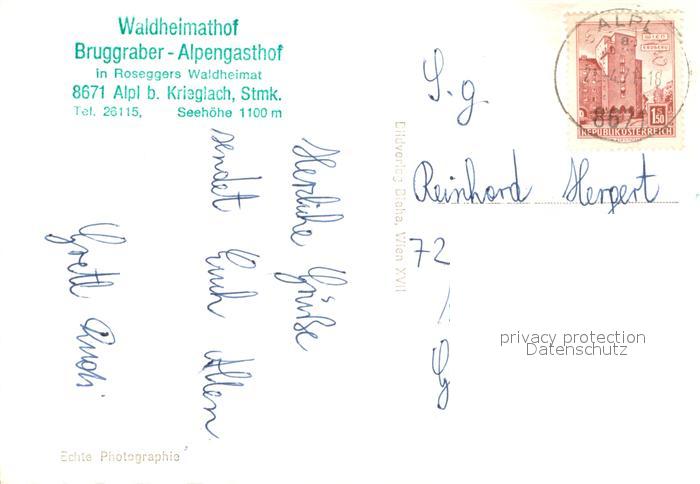 Waldheimathof
Bruggraber - Alpengasthof
in Roseggers Waldheimat
8671 Alpl b. Krieglach, Stmk.
Tel. 26115, Seehöhe 1100 m
Herzliche Grüße
sendet Euch Allen
Gretl
Echte Photographie
Bildverlag Blaha, Wien XVII
WIEN
ERDBERG
1.50
REPUBLIK ÖSTERREICH
ALPL
867
S. g.
Reinhard Herpert
72
privacy protection
Datenschutz